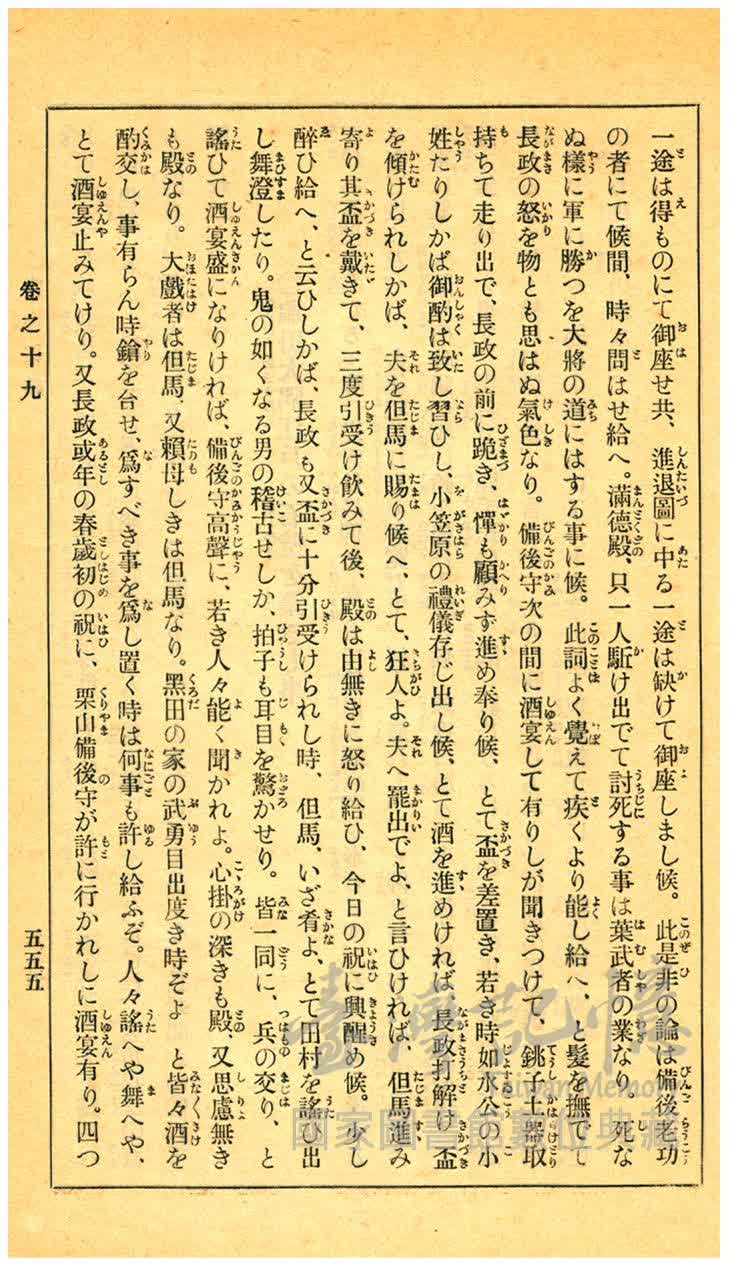 一途は得ものにて御座せ共、進退圖に中る一途は缺けて御座しまし候。此是非の論は備後老功
の者にて候間、時々問はせ給へ。滿德殿、只一人駈け出でて討死する事は葉武者の業なり。死な
ぬ樣に軍に勝つを大將の道にはする事に候。此詞よく覺えて疾くより能し給へ、と髮を撫でて
長政の怒を物とも思はぬ氣色なり。備後守次の間に酒宴して有りしが聞きつけて、銚子土器取
持ちて走り出で、長政の前に跪き、憚も顧みず進め奉り候、とて盃を差置き、若き時如水公の小
姓たりしかば御酌は致し習ひし、小笠原の禮儀存じ出し候、とて酒を進めければ、長政打解け盃
を傾けられしかば、夫を但馬に賜り候へ、とて、狂人よ。夫へ罷出でよ、と言ひければ、但馬進み
寄り其盃を戴きて、三度引受け飮みて後、殿は由無きに怒り給ひ、今日の祝に興醒め候。少し
醉ひ給へ、と云ひしかば、長政も又盃に十分引受けられし時、但馬、いざ肴よ、とて田村を謠ひ出
し舞澄したり。鬼の如くなる男の稽古せしか、拍子も耳目を驚かせり。皆一同に、兵の交り、と
謠ひて酒宴盛になりければ、備後守高聲に、若き人々能く聞かれよ。心掛の深きも殿、又思慮無き
も殿なり。大戲者は但馬、又賴母しきは但馬なり。黑田の家の武勇目出度き時ぞよ と皆々酒を
酌交し、事有らん時鎗を台せ、爲すべき事を爲し置く時は何事も許し給ふぞ。人々謠へや舞へや、
とて酒宴止みてけり。又長政或年の春歲初の祝に、栗山備後守が許に行かれしに酒宴有り。四つ
卷之十九
五五五
臺灣記憶
Taiwan Memory
國家圖書館數位典藏